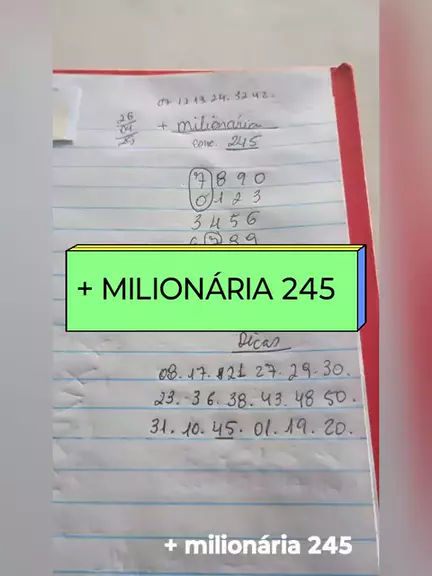 07 12 13 24. 32 42.
26
04
25
+ milionária
conc. 245
7 8 9 0
0 1 2 3
3 4 5 6
6 7 8 9
+ MILIONÁRIA 245
Dicas
08. 17. 21 27. 29. 30.
23. 36. 38. 43. 48 50.
31. 10. 45. 01. 19. 20.
+ milionária 245